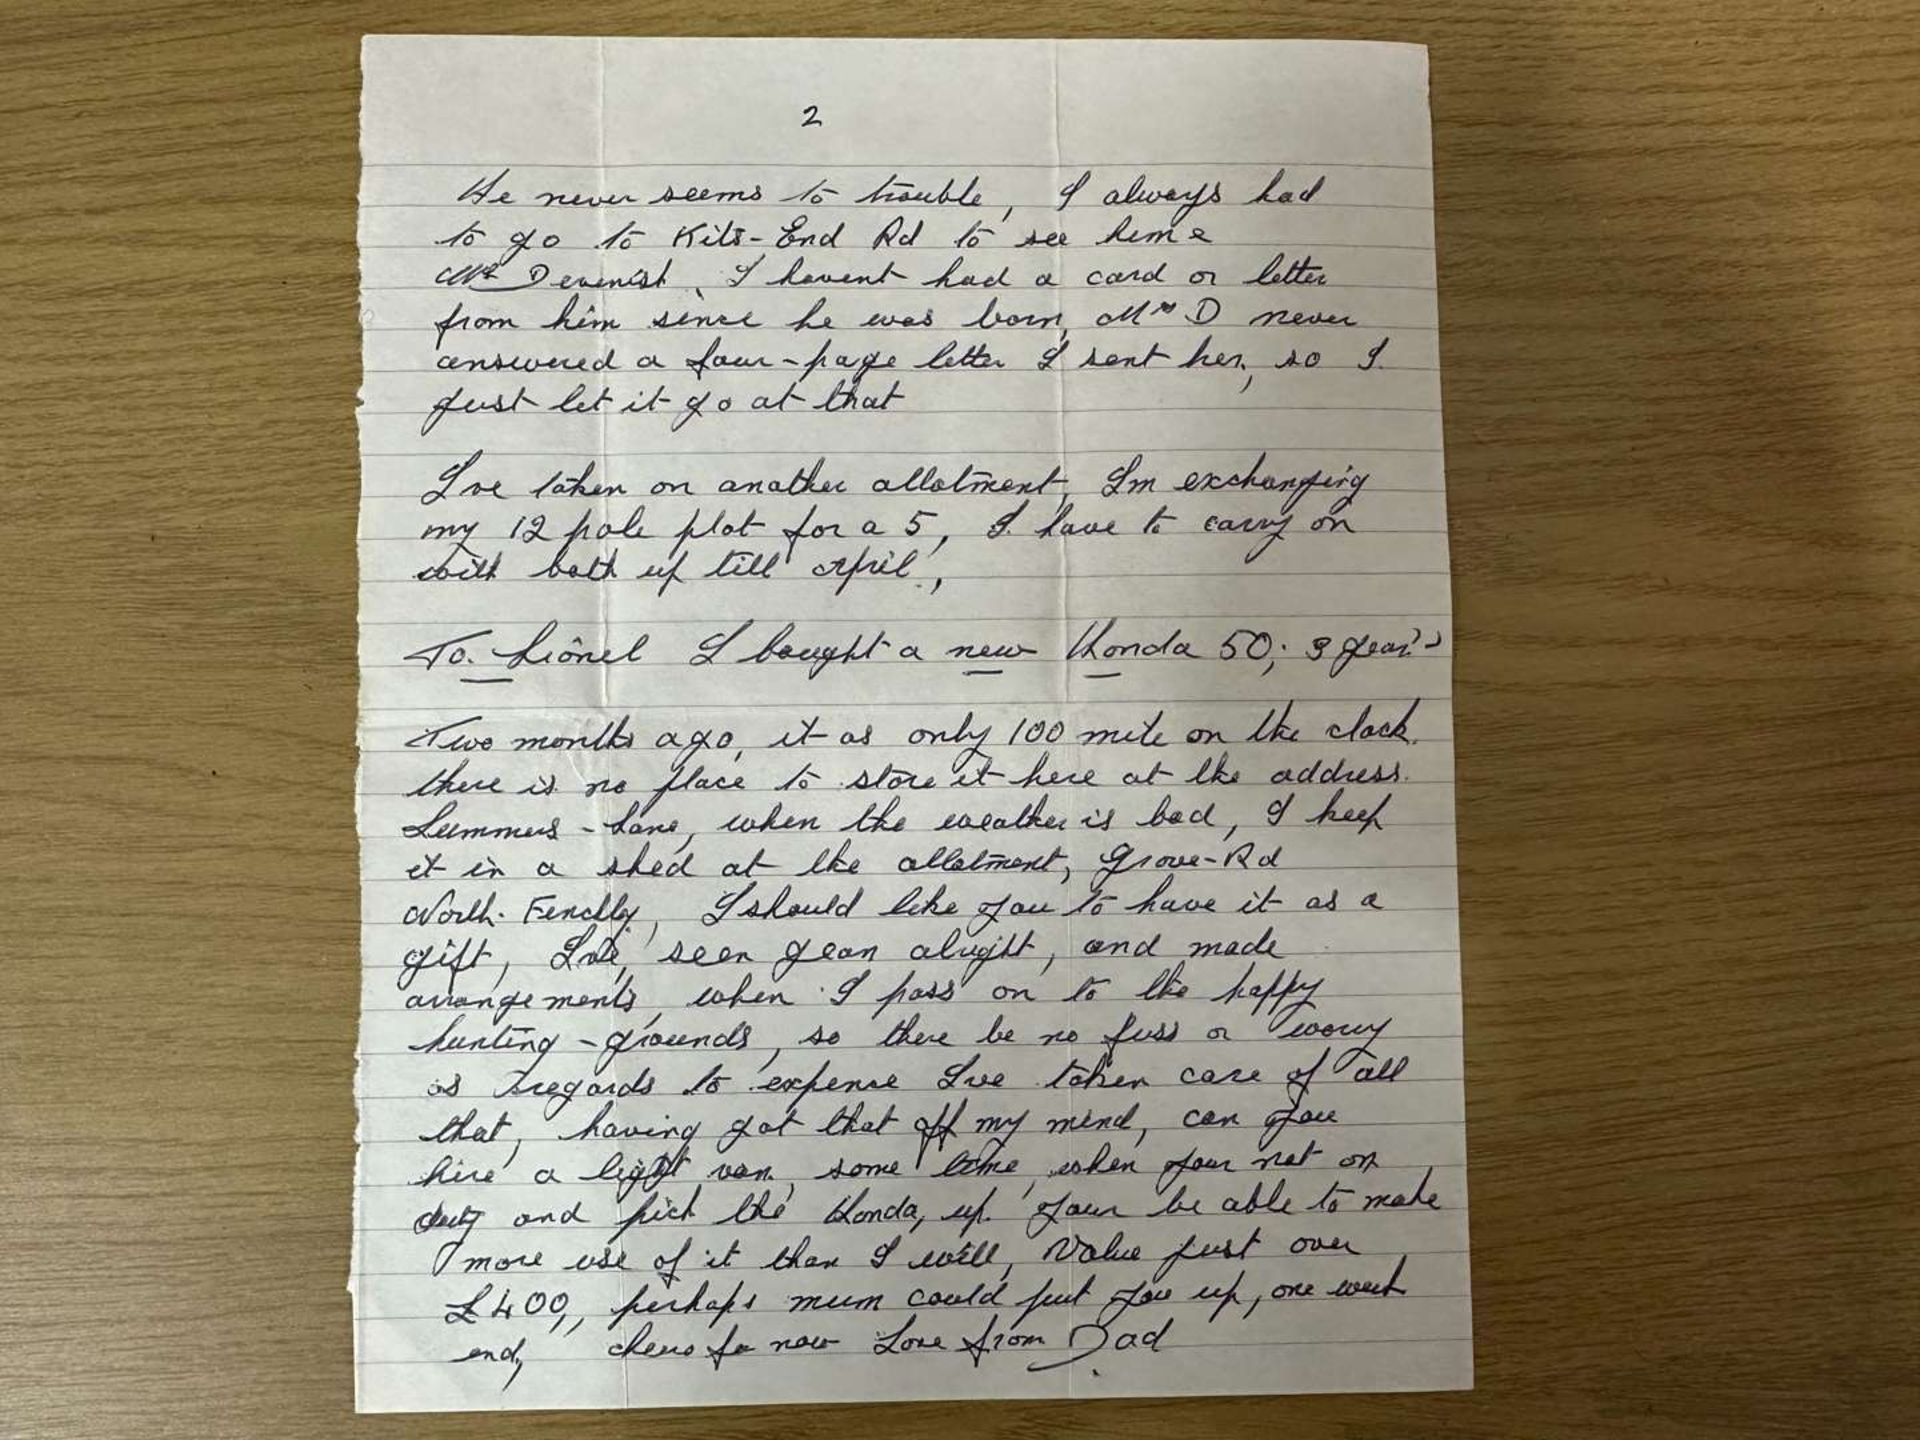 2
He never seems to trouble, I always had
to go to Kits-End Rd to see him &
Mrs Devenist, I havent had a card or letter
from him since he was born, Mrs D never
answered a four-page letter I sent her, so I
just let it go at that
I've taken on another allotment, Im exchanging
my 12 pole plot for a 5, I have to carry on
with both up till April,
To. Lionel I bought a new Honda 50; 3 gears
Two months ago, it as only 100 mile on the clock.
there is no place to store it here at the address.
Summers-Lane, when the weather is bad, I keep
it in a shed at the allotment, Grove-Rd
North. Finchly, I should like you to have it as a
gift, I've, seen Jean alright, and made
arrangements, when I pass on to the happy
hunting-grounds, so there be no fuss or worry
as regards to expense I've taken care of all
that, having got that off my mind, can you
hire a light van, some time, when your not on
duty and pick the Honda, up. your be able to make
more use of it than I will, Value just over
£400,, perhaps mum could put you up, one week
end, cheers for now Love from Dad